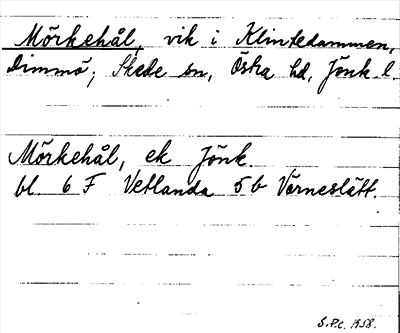 Mörkehål, vik i Klintedammen,
Dimmö; Skede sn, Östra hd, Jönk l.
Mörkehål, ek Jönk.
bl. 6 F Vetlanda 5 b Värneslätt.
S.P.C. 1958.